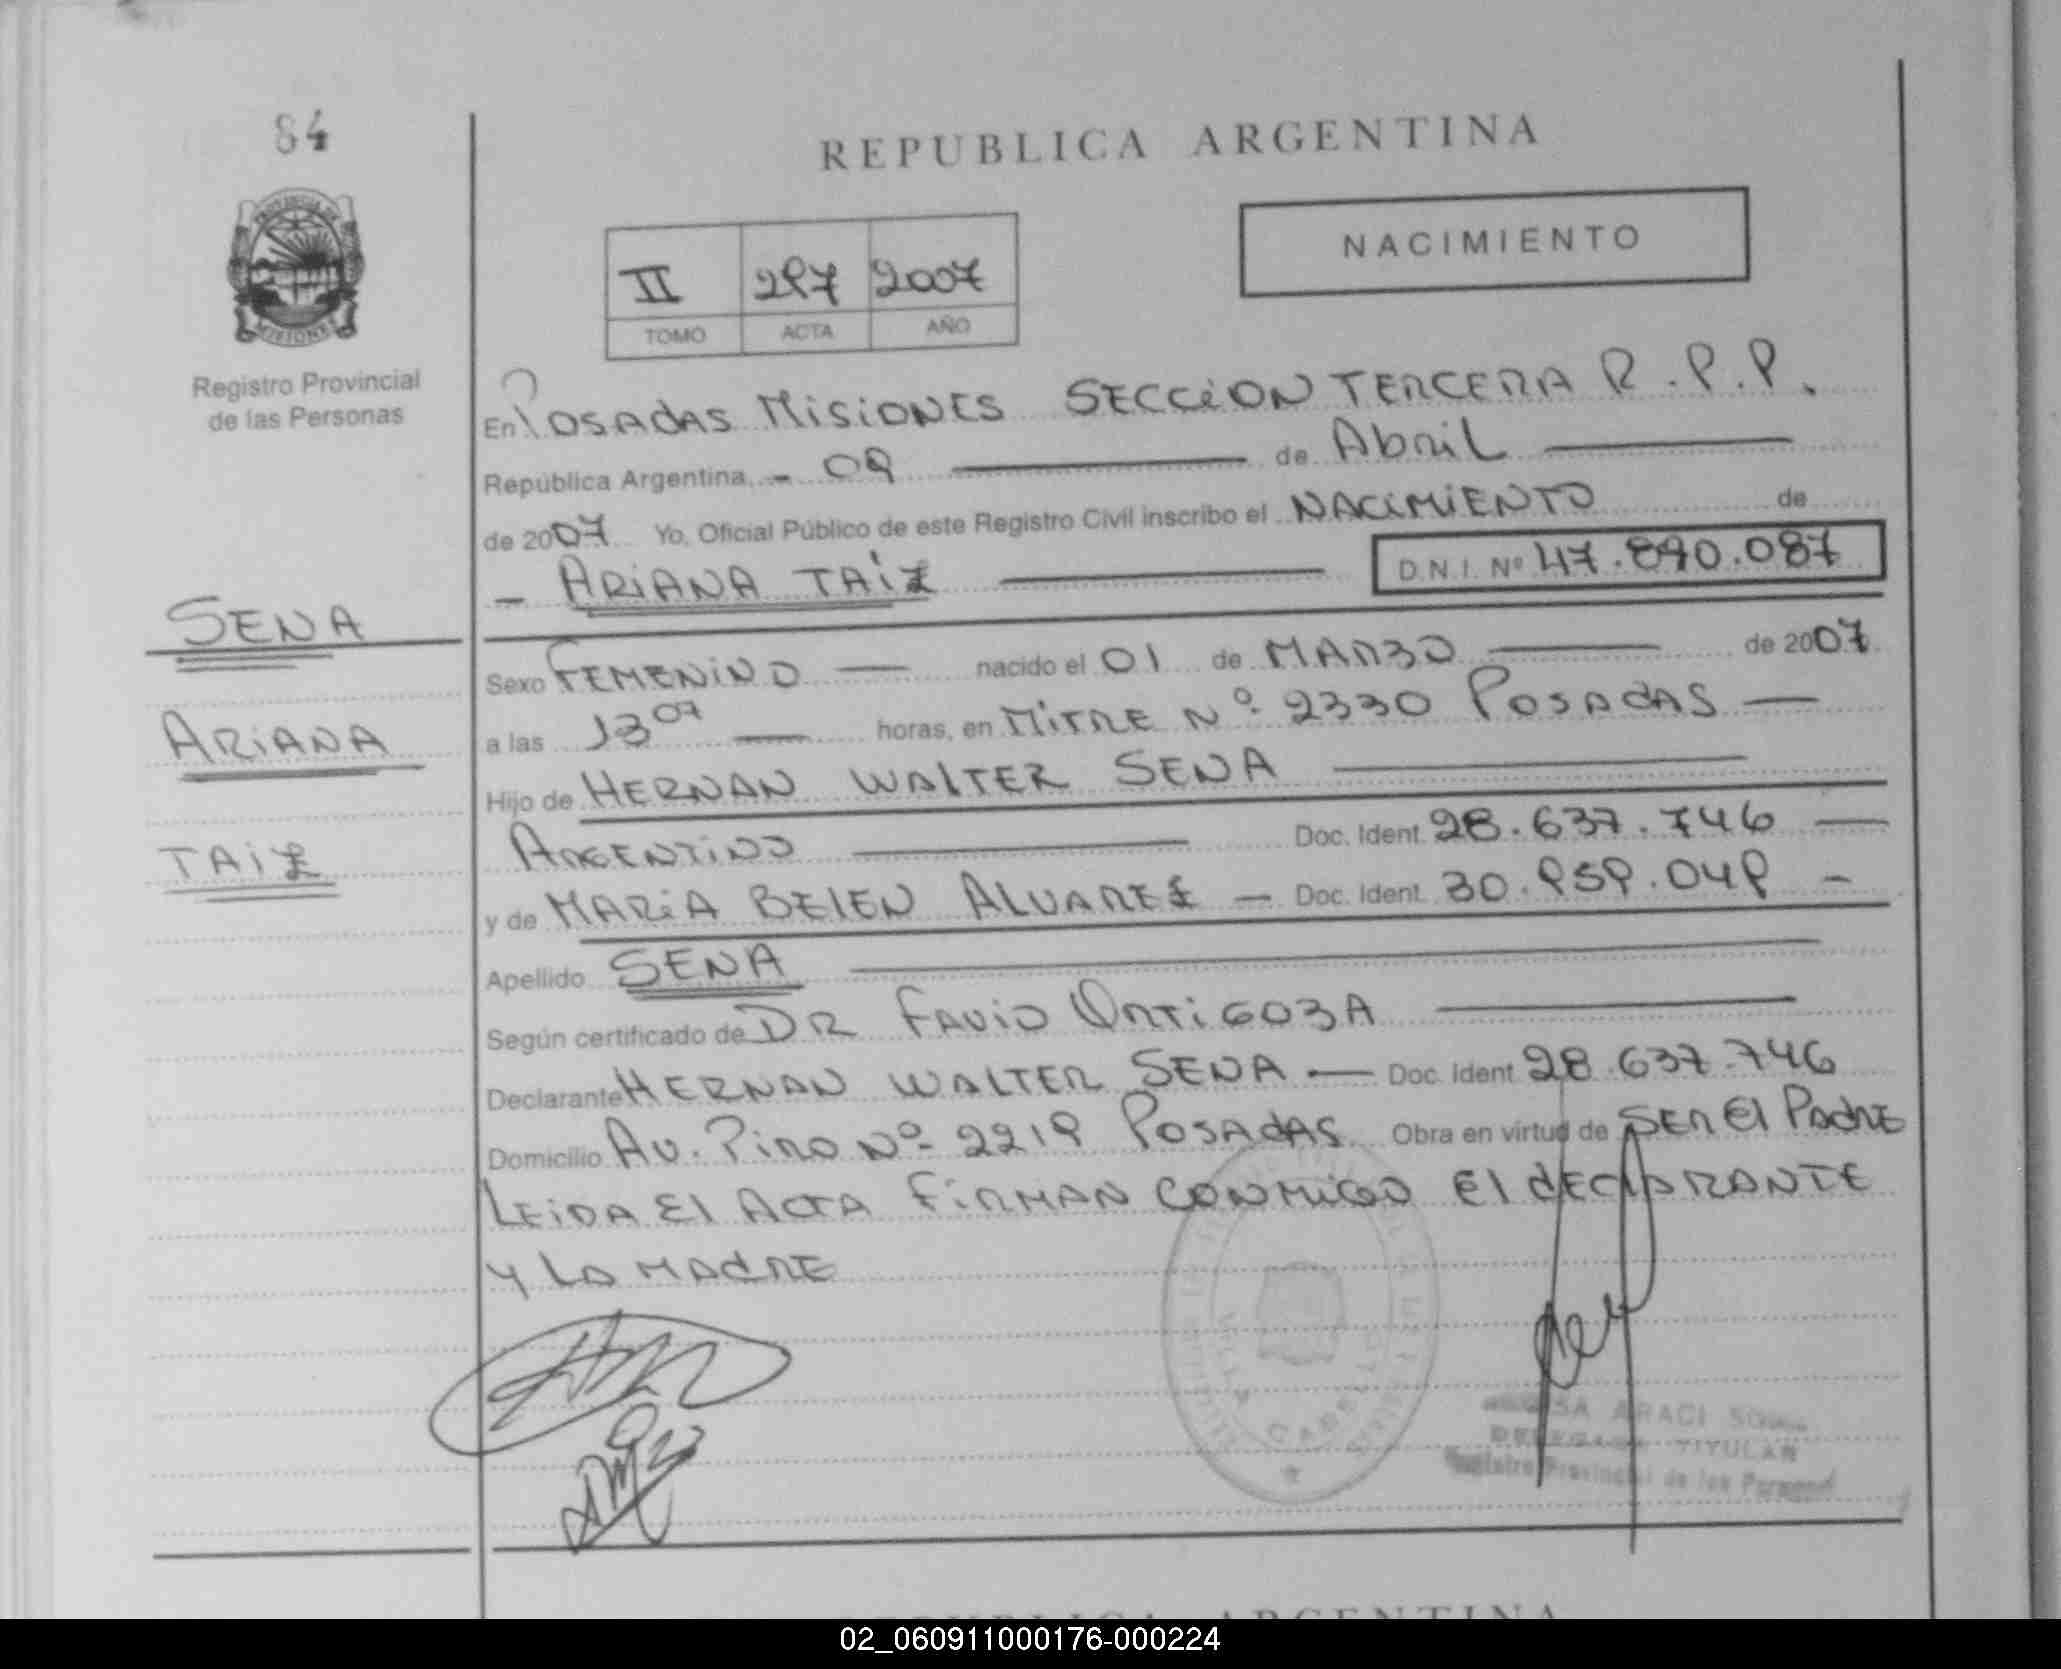 84
REPUBLICA ARGENTINA
NACIMIENTO
II 297 2007
TOMO ACTA AÑO
PROVINCIA DE
MISIONES
Registro Provincial
de las Personas
En POSADAS MISIONES SECCION TERCERA R.P.P.
República Argentina, - 09 de Abril
de 2007 Yo, Oficial Público de este Registro Civil inscribo el NACIMIENTO de
- ARIANA TAIZ D.N.I. Nº 47.890.087
SENA
Sexo FEMENINO nacido el 01 de MARZO de 2007
ARIANA
a las 13 07 horas, en MITRE Nº 2330 POSADAS
Hijo de HERNAN WALTER SENA
TAIZ
ARGENTINO Doc. Ident. 28.637.746
y de MARIA BELEN ALVAREZ - Doc. Ident. 30.959.049 -
Apellido SENA
Según certificado de DR FAVIO ORTIGOZA
Declarante HERNAN WALTER SENA - Doc. Ident. 28.637.746
Domicilio AV. PIRO Nº 2219 POSADAS Obra en virtud de SER El PADRE
LEIDA El ACTA FIRMAN CONMIGO El dECLARANTE
y LA MADRE
ARACI
TITULAR
Registro Provincial de las
REPUBLICA ARGENTINA
02_060911000176-000224